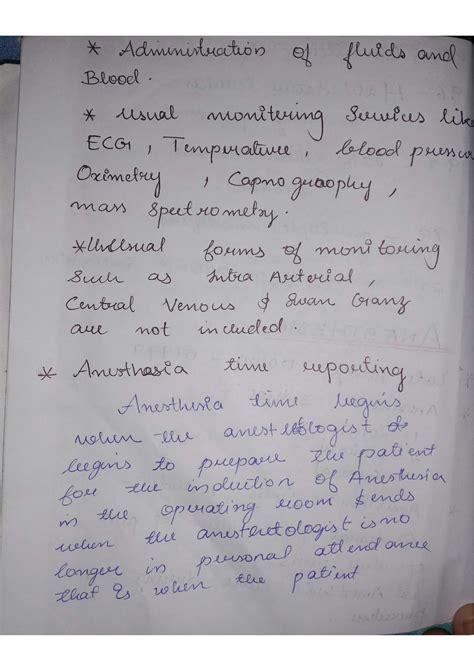 * Administration of fluids and
Blood.
* Usual monitering Services like
ECG, Temperature, blood pressur
Oximetry, Capnography,
mass spectrometry.
* UnUsual forms of monitoring
Such as Intra Arterial,
Central Venous & Swan Ganz
are not included.
* Anesthesia time reporting
Anesthesia time begins
when the anesthologist
begins to prepare the patient
for the induction of Anesthesia
in the operating room & ends
when the anesthetologist is no
longer in personal attendance
that is when the patient